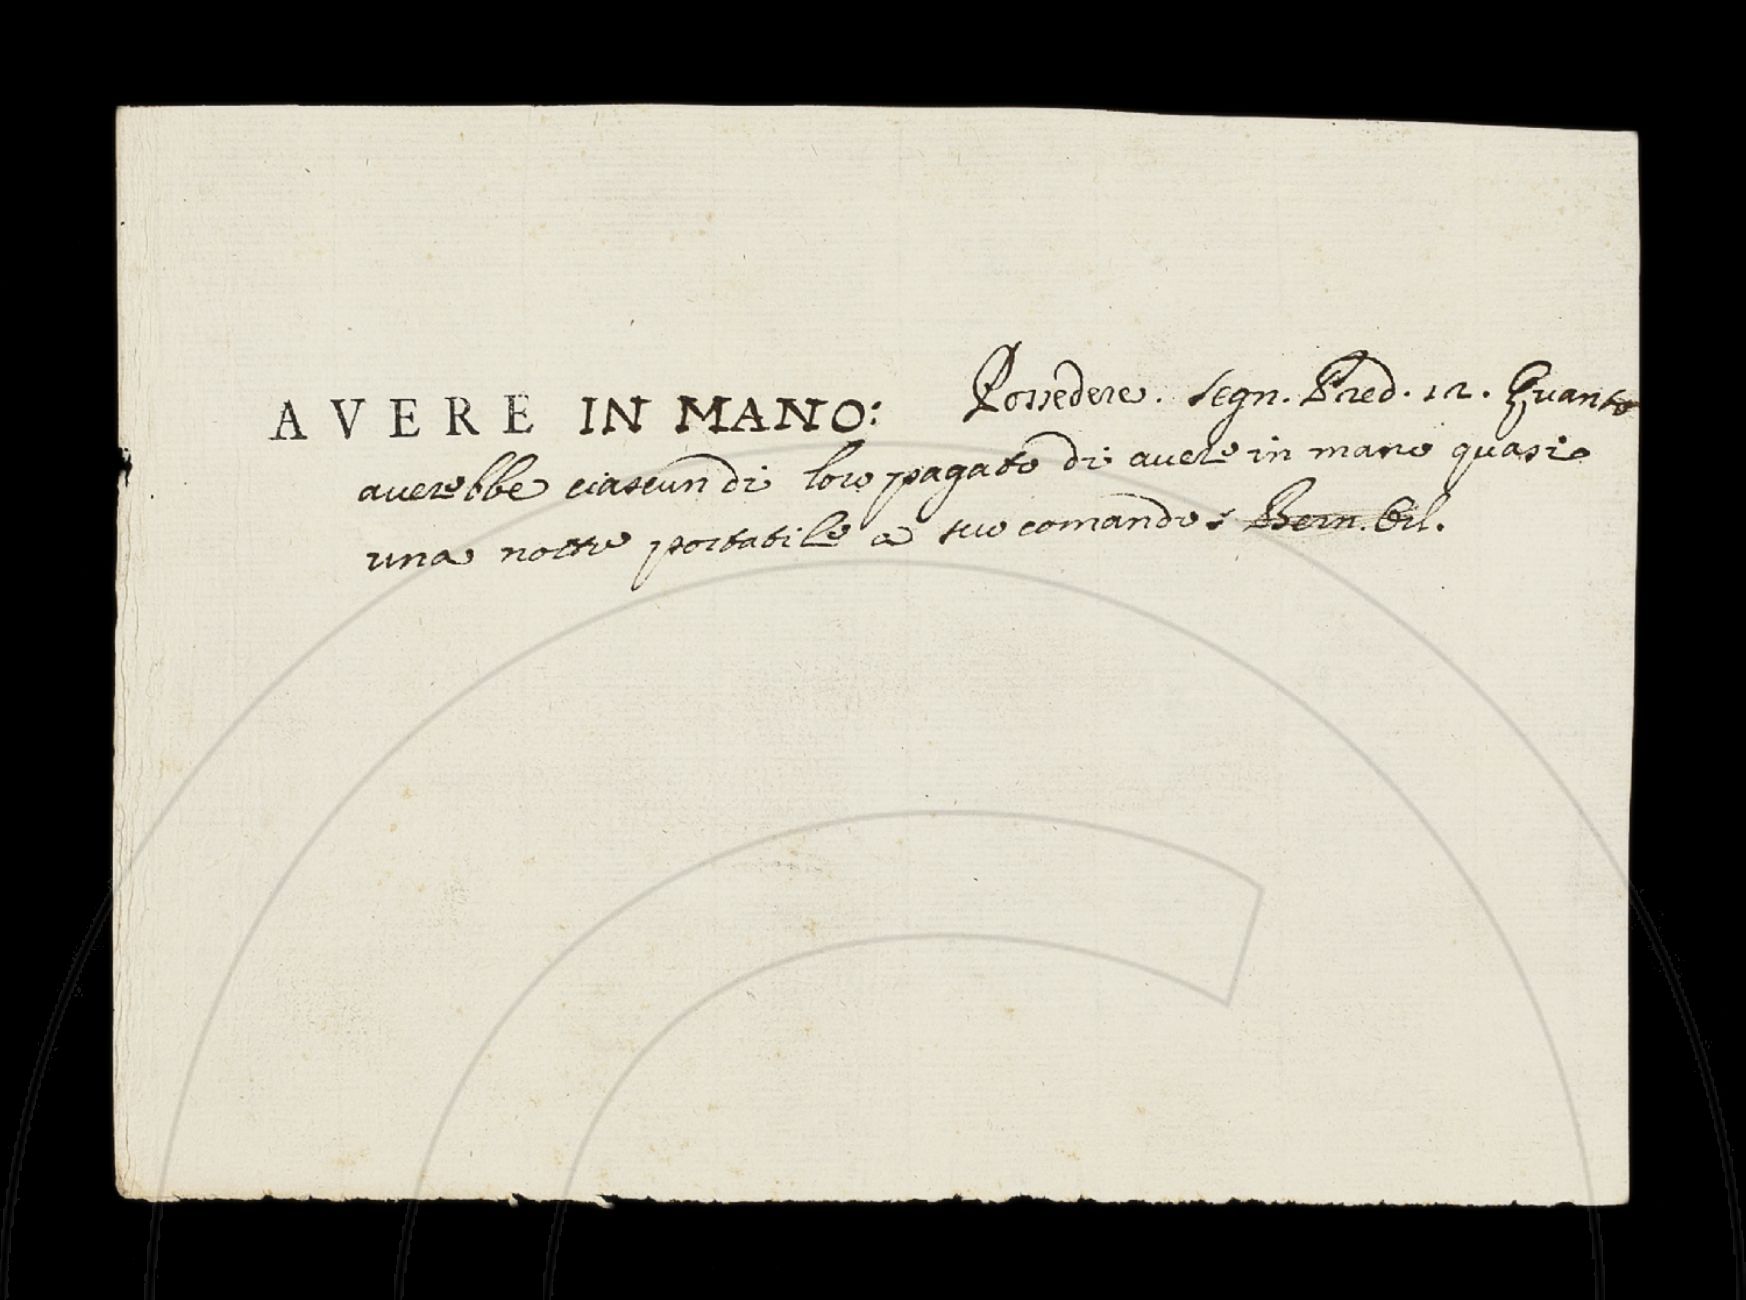 AVERE IN MANO: Possedere. Segn. Pred. 12. Quanto
averebbe ciascun di loro pagato di avere in mano quasi
una notte portatile a suo comando